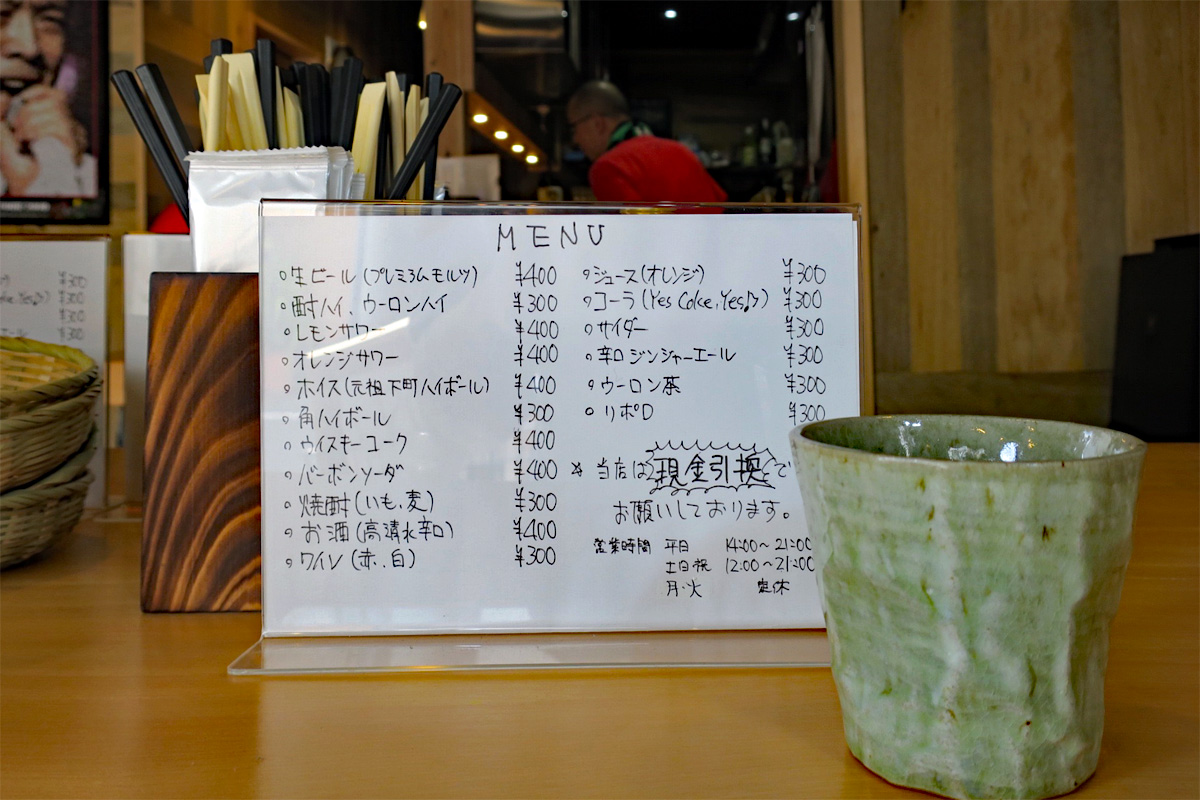 MENU
○生ビール(プレミアムモルツ) ¥400
○酎ハイ、ウーロンハイ ¥300
○レモンサワー ¥400
○オレンジサワー ¥400
○ホイス(元祖下町ハイボール) ¥400
○角ハイボール ¥300
○ウイスキーコーク ¥400
○バーボンソーダ ¥400
○焼酎(いも、麦) ¥300
○お酒(高清水辛口) ¥400
○ワイン(赤、白) ¥300
○ジュース(オレンジ) ¥300
○コーラ(Yes Coke, Yes♪) ¥300
○サイダー ¥300
○辛口ジンジャーエール ¥300
○ウーロン茶 ¥300
○リポD ¥300
※当店は現金引換で
お願いしております。
営業時間 平日 14:00〜21:00
土日祝 12:00〜21:00
月・火 定休
¥300
¥300
¥300
エール ¥300